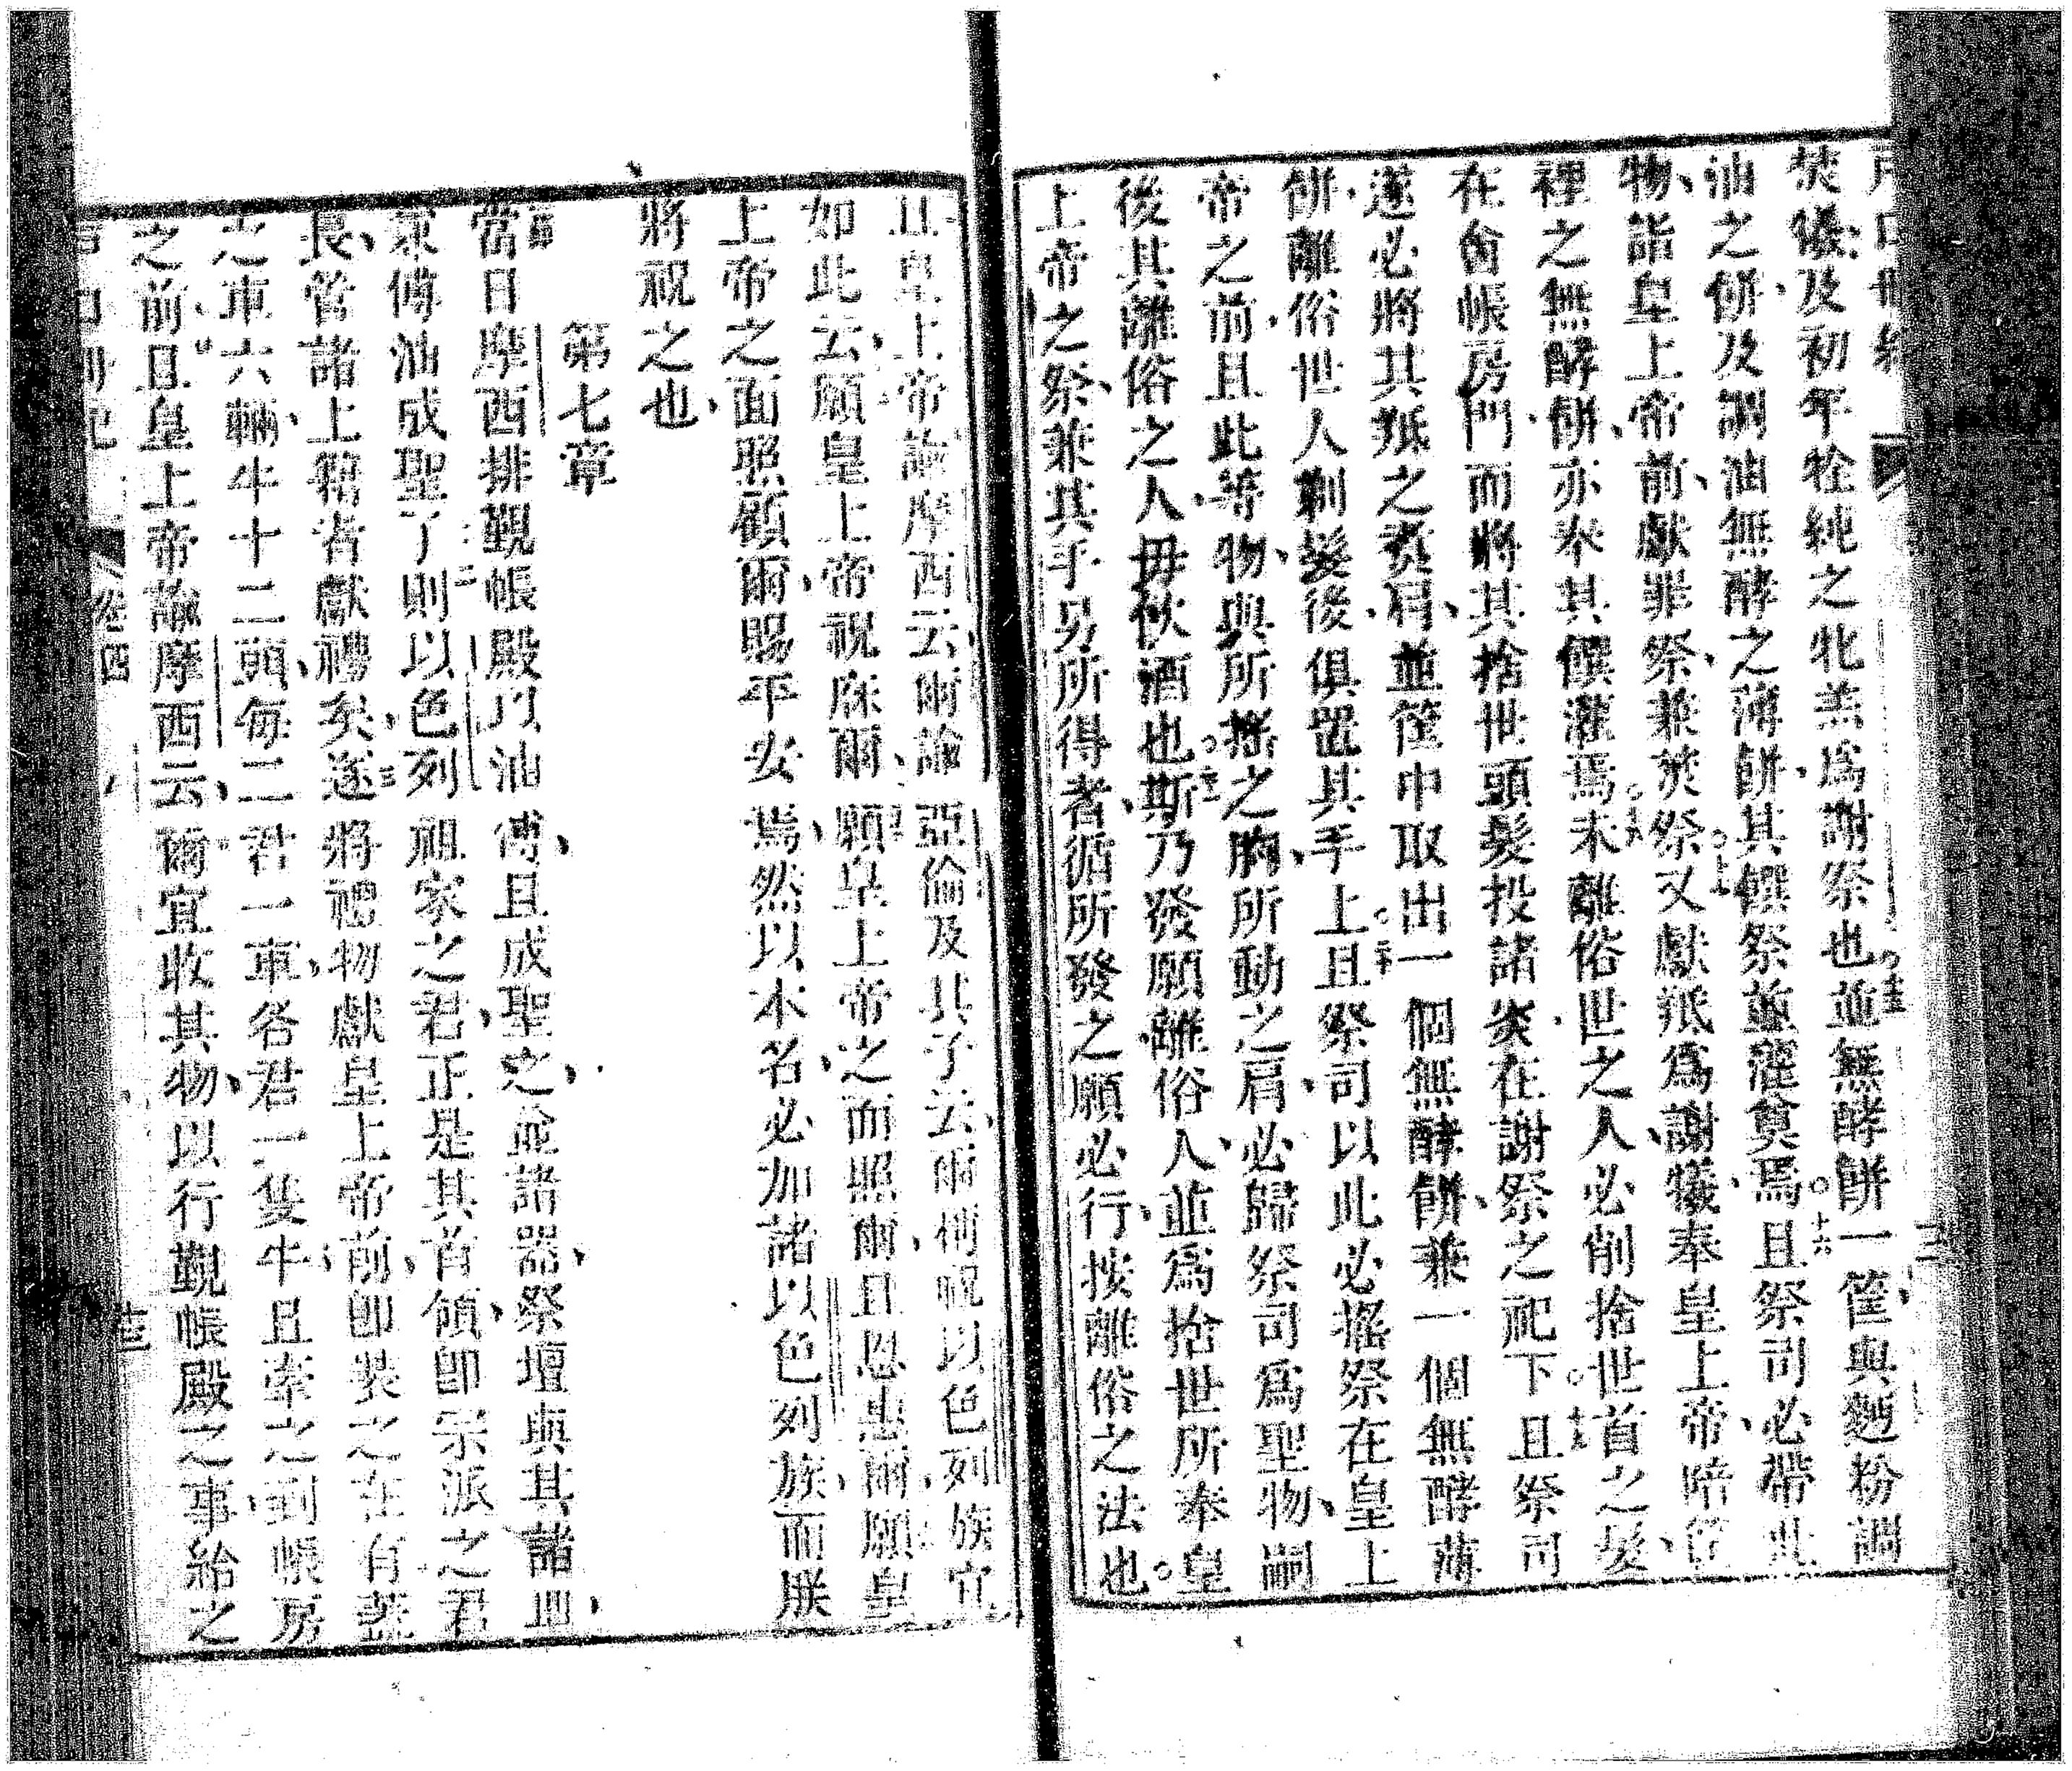 焚犧及初年牷純之牝羔爲謝祭也並無酵餅一筐與麪粉調
油之餅及調油無酵之薄餅其饌祭並灌奠焉且祭司必帶此
物詣皇上帝前獻罪祭兼焚祭又獻羝爲謝犧奉皇上帝暗筐
裡之無酵餅亦奉其饌灌焉未離俗世之人必削捨世首之髮
在會帳房門而將其捨世頭髮投諸炎在謝祭之祀下且祭司
遂必將其羝之煮肩並筐中取出一個無酵餅兼一個無酵薄
餅離俗世人剃髮後俱置其手上且祭司以此必搖祭在皇上
帝之前且此等物與所搖之胸所動之肩必歸祭司爲聖物嗣
後其離俗之人毋飲酒也斯乃發願離俗人並爲捨世所奉皇
上帝之祭兼其手另所得者循所發之願必行按離俗之法也
且皇上帝諭摩西云爾諭亞倫及其子云爾儕祝以色列族宜
如此云願皇上帝祝庥爾願皇上帝之面照爾且恩惠爾願皇
上帝之面照顧爾賜平安焉然以本名必加諸以色列族而朕
將祝之也
第七章
當日摩西排覲帳殿以油傅且成聖之並諸器祭壇與其諸皿
眾傅油成聖了則以色列祖家之君正是其首領卽宗派之君
長管諸上籍者獻禮矣遂將禮物獻皇上帝前卽裝之在有蓋
之車六輛牛十二頭每二君一車各君一隻牛且牽之到帳房
之前且皇上帝諭摩西云爾宜收其物以行覲帳殿之事給之
卷四